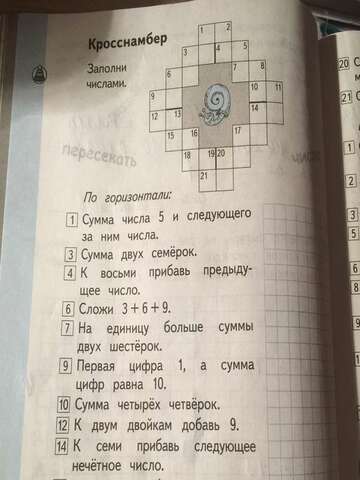 Кросснамбер
Заполни
числами.
1 2
3 4 5
6 7 8
9 10 11
12 13 14
15 16 17
18 19 20
21
пересекать
По горизонтали:
1 Сумма числа 5 и следующего
за ним числа.
3 Сумма двух семёрок.
4 К восьми прибавь предыду-
щее число.
6 Сложи 3+6+9.
7 На единицу больше суммы
двух шестёрок.
9 Первая цифра 1, а сумма
цифр равна 10.
10 Сумма четырёх четвёрок.
12 К двум двойкам добавь 9.
14 К семи прибавь следующее
нечётное число.
20 С
21 С